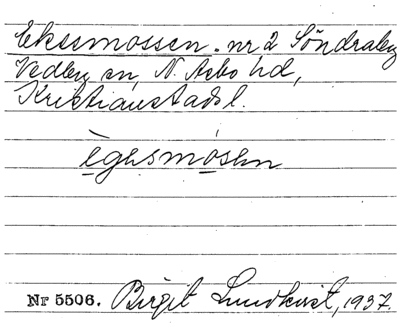 Eksemossen. nr 2 Söndraby
Vedby sn, N. Åsbo hd,
Kristianstads l.
ègəsmósən
Nr 5506. Birgit Lundkvist, 1937.